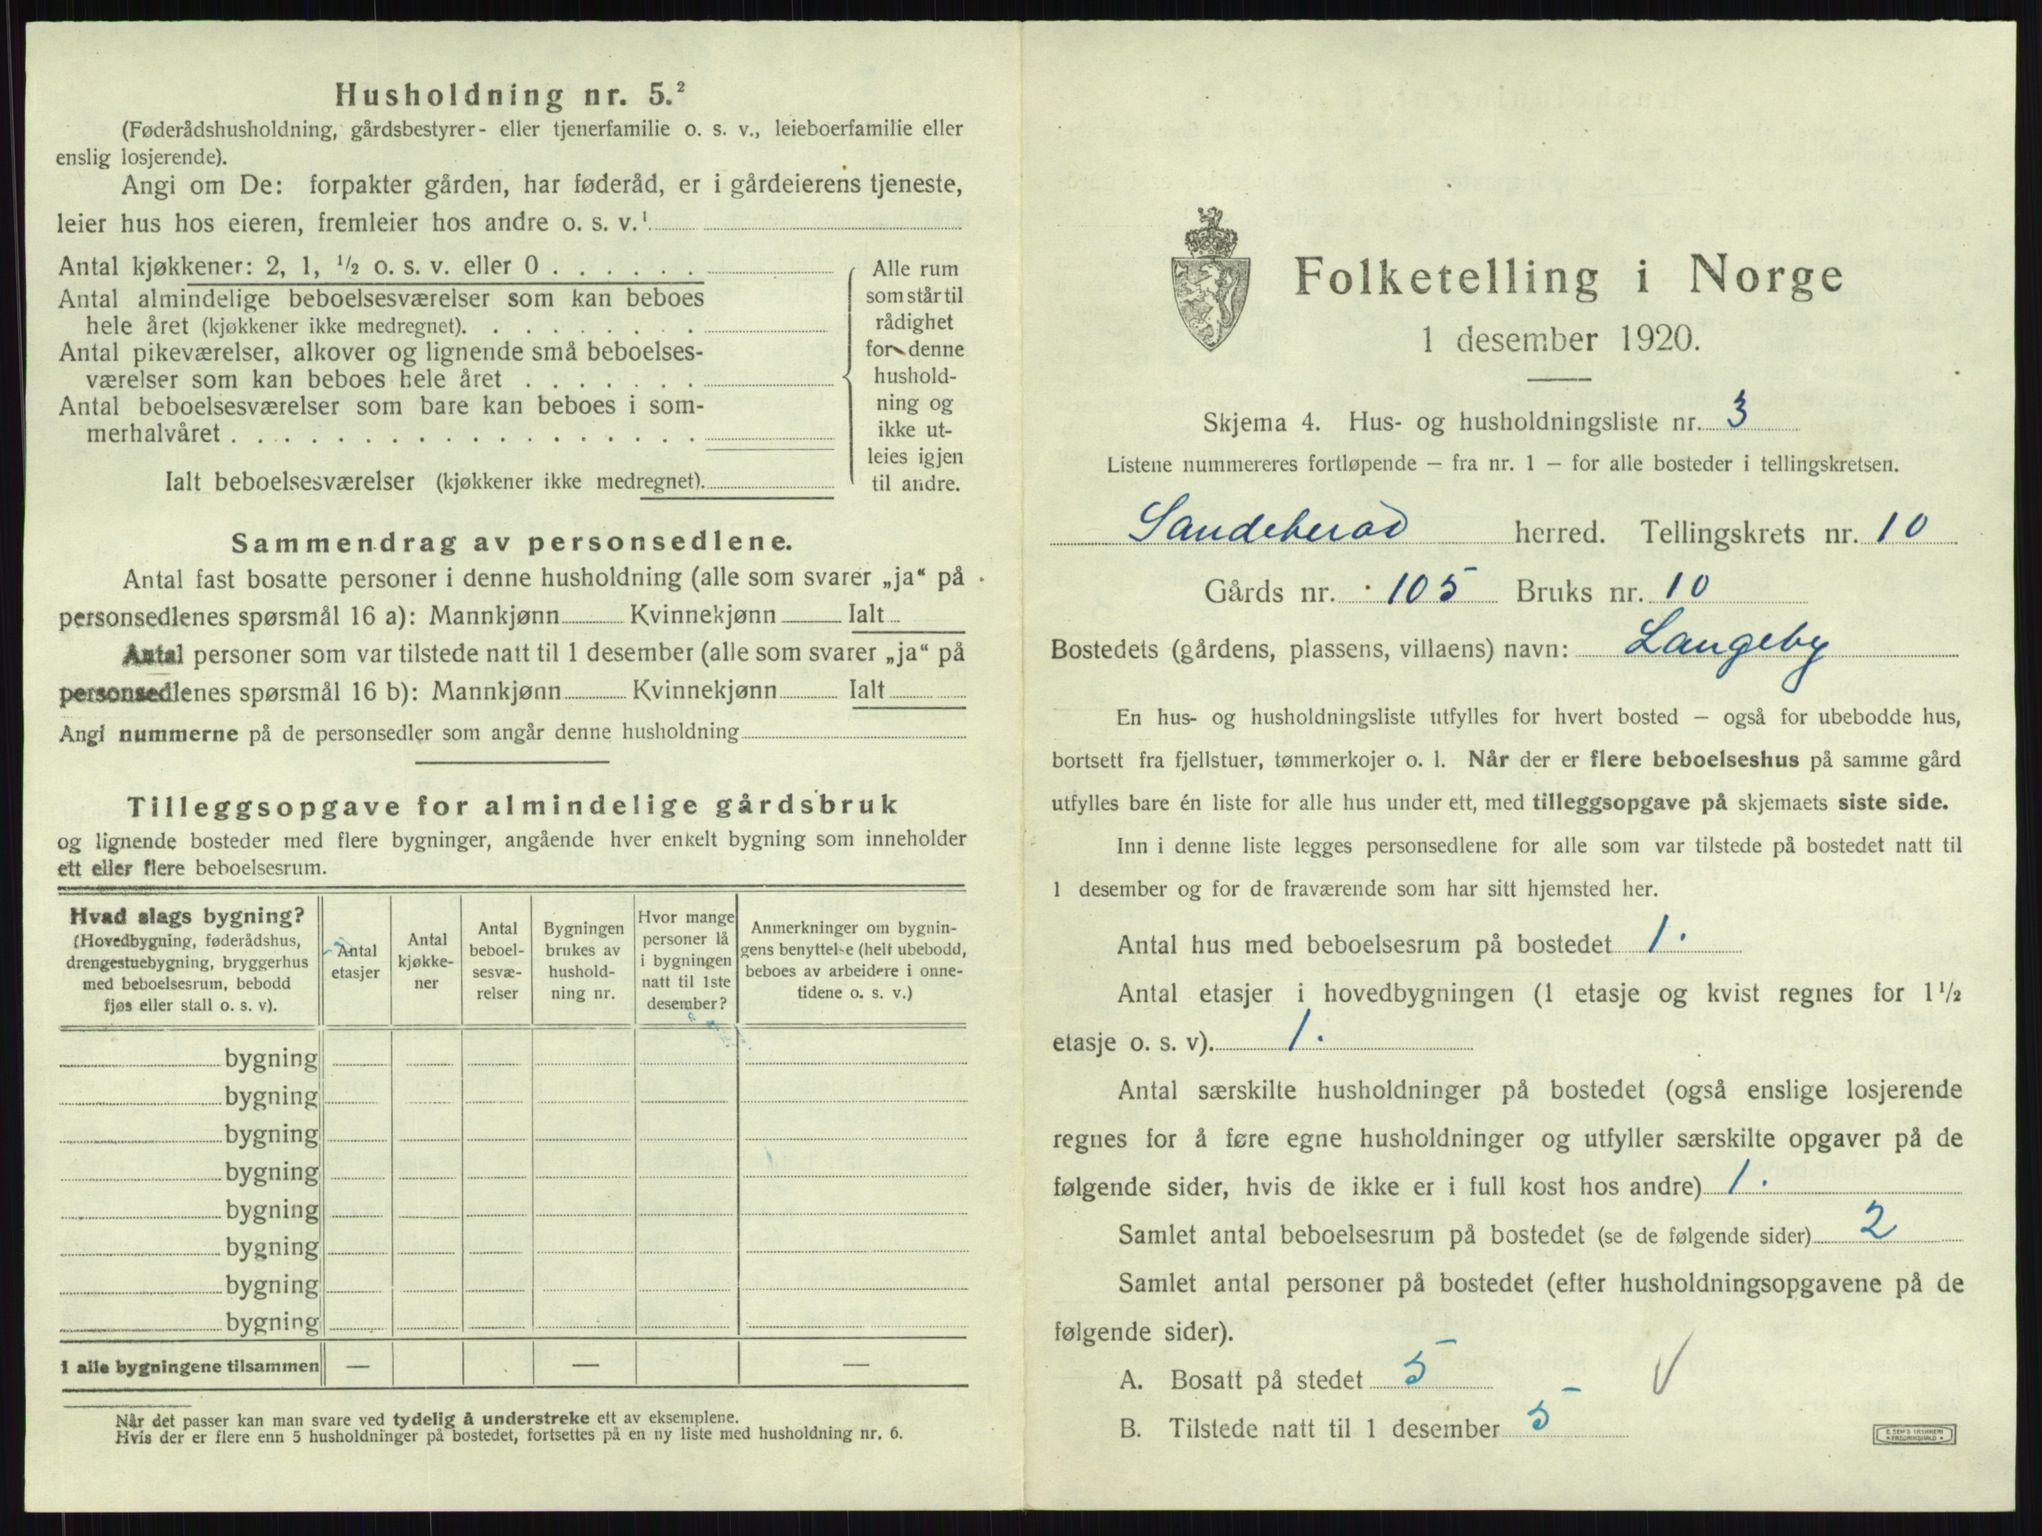 Husholdning nr. 5.²
(Føderådshusholdning, gårdsbestyrer- eller tjenerfamilie o. s. v., leieboerfamilie eller
enslig losjerende).
Angi om De: forpakter gården, har føderåd, er i gårdeierens tjeneste,
leier hus hos eieren, fremleier hos andre o. s. v.¹
Antal kjøkkener: 2, 1, ½ o. s. v. eller 0 . . . . . .
Antal almindelige beboelsesværelser som kan beboes
hele året (kjøkkener ikke medregnet). . . . . . . . .
Antal pikeværelser, alkover og lignende små beboelses-
værelser som kan beboes hele året . . . . . . .
Antal beboelsesværelser som bare kan beboes i som-
merhalvåret . . . . . . . . . . . . . . . . . .
Ialt beboelsesværelser (kjøkkener ikke medregnet).
Alle rum
som står til
rådighet
for denne
hushold-
ning og
ikke ut-
leies igjen
til andre.
Sammendrag av personsedlene.
Antal fast bosatte personer i denne husholdning (alle som svarer „ja“ på
personsedlenes spørsmål 16 a): Mannkjønn Kvinnekjønn Ialt
Antal personer som var tilstede natt til 1 desember (alle som svarer „ja“ på
personsedlenes spørsmål 16 b): Mannkjønn Kvinnekjønn Ialt
Angi nummerne på de personsedler som angår denne husholdning
Tilleggsopgave for almindelige gårdsbruk
og lignende bosteder med flere bygninger, angående hver enkelt bygning som inneholder
ett eller flere beboelsesrum.
Hvad slags bygning?
(Hovedbygning, føderådshus,
drengestuebygning, bryggerhus
med beboelsesrum, bebodd
fjøs eller stall o. s. v).
Antal
etasjer
Antal
kjøkke-
ner
Antal
beboel-
sesvæ-
relser
Bygningen
brukes av
hushold-
ning nr.
Hvor mange
personer lå
i bygningen
natt til 1ste
desember?
Anmerkninger om bygnin-
gens benyttelse (helt ubebodd,
beboes av arbeidere i onne-
tidene o. s. v.)
bygning
bygning
bygning
bygning
bygning
bygning
bygning
bygning
I alle bygningene tilsammen — — —
Når det passer kan man svare ved tydelig å understreke ett av eksemplene.
Hvis der er flere enn 5 husholdninger på bostedet, fortsettes på en ny liste med husholdning nr. 6.
Folketelling i Norge
1 desember 1920.
Skjema 4. Hus- og husholdningsliste nr. 3
Listene nummereres fortløpende – fra nr. 1 – for alle bosteder i tellingskretsen.
Sandeherad herred. Tellingskrets nr. 10
Gårds nr. 105 Bruks nr. 10
Bostedets (gårdens, plassens, villaens) navn: Langeby
En hus- og husholdningsliste utfylles for hvert bosted – også for ubebodde hus,
bortsett fra fjellstuer, tømmerkojer o. l. Når der er flere beboelseshus på samme gård
utfylles bare én liste for alle hus under ett, med tilleggsopgave på skjemaets siste side.
Inn i denne liste legges personsedlene for alle som var tilstede på bostedet natt til
1 desember og for de fraværende som har sitt hjemsted her.
Antal hus med beboelsesrum på bostedet 1.
Antal etasjer i hovedbygningen (1 etasje og kvist regnes for 1½
etasje o. s. v). 1.
Antal særskilte husholdninger på bostedet (også enslige losjerende
regnes for å føre egne husholdninger og utfyller særskilte opgaver på de
følgende sider, hvis de ikke er i full kost hos andre) 1.
Samlet antal beboelsesrum på bostedet (se de følgende sider) 2
Samlet antal personer på bostedet (efter husholdningsopgavene på de
følgende sider).
A. Bosatt på stedet 5
B. Tilstede natt til 1 desember 5